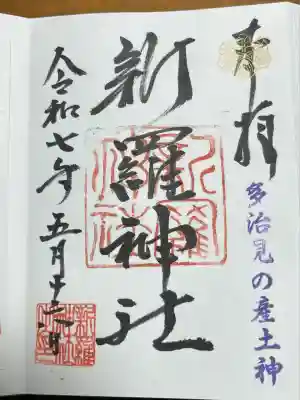 奉拝
多治見の産土神
新羅神社
令和七年五月十三日